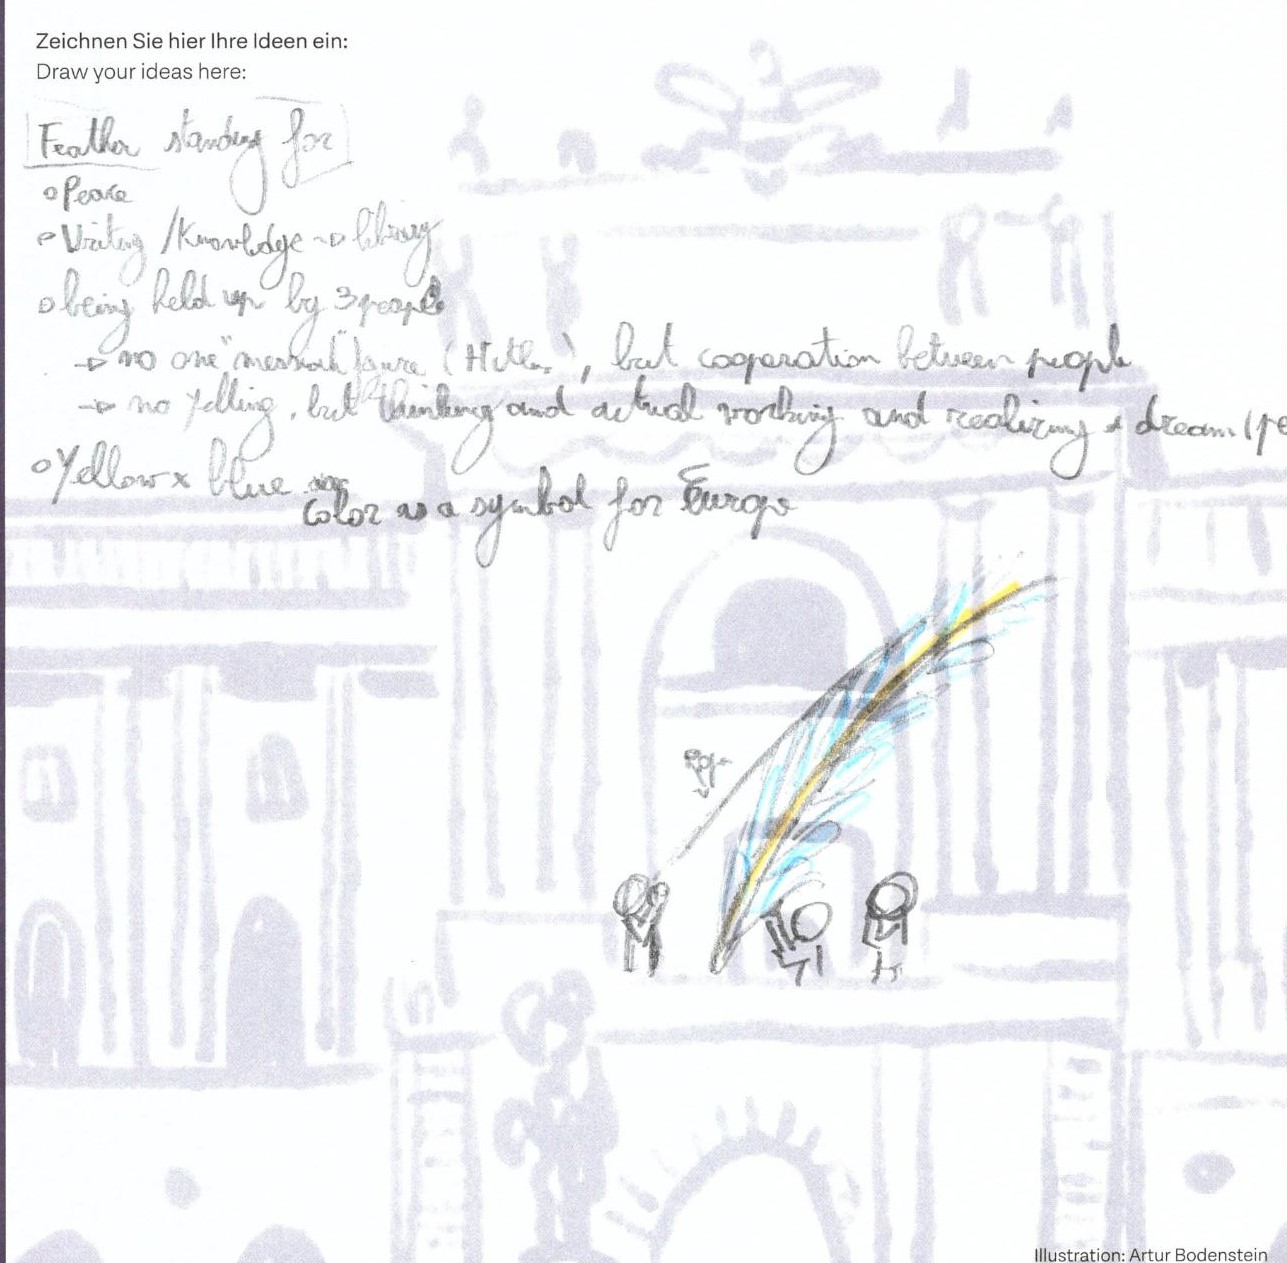 Zeichnen Sie hier Ihre Ideen ein:
Draw your ideas here:
Feather standing for
Peace
Writing / Knowledge → library
being held up by 3 people
→ no one "messiah" figure (Hitler), but cooperation between people
→ no yelling, but thinking and actual working and realizing a dream (pe
Yellow x blue
Color as a symbol for Europe
Illustration: Artur Bodenstein